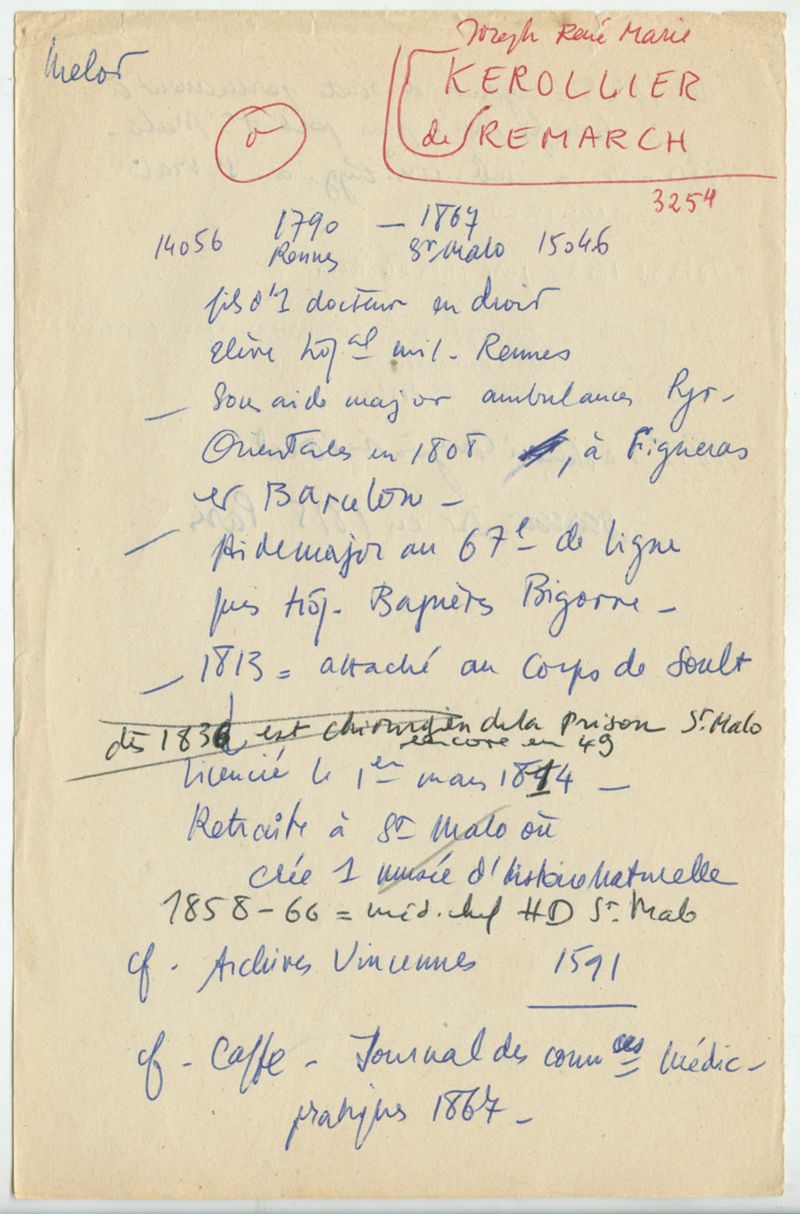 Joseph René Marie
Melot
KEROLLIER
de SREMARCH
o
3254
14056 1790 — 1867 15046
Rennes St Malo
fils d'1 docteur en droit
élève hôp al mil. Rennes
— Sous aide major ambulances Pyr-
Orientales en 1808, à Figueras
et Barcelone —
— Aide major au 67e de ligne
puis hôp. Bagnères Bigorre —
— 1813 = attaché au Corps de Soult
dès 1836 est chirurgien de la prison St Malo
encore en 49
licencié le 1er mars 1814 —
Retraite à St Malo où
crée 1 musée d'histoire naturelle
1858-66 = méd. chef HD St Malo
cf. Archives Vincennes 1591
cf - Caffe - Journal des conn ces médic -
pratiques 1867 -